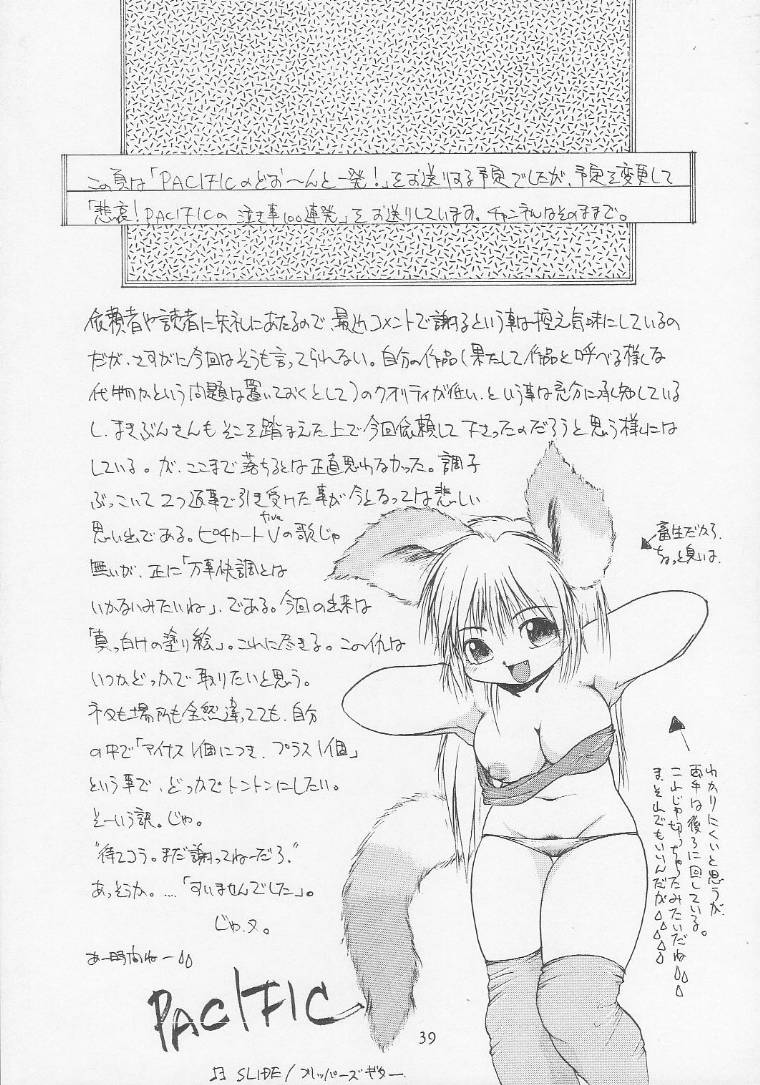 この頁は「PACIFICのどお〜んと一発!」をお送りする予定でしたが、予定を変更して
「悲哀!PACIFICの泣き事100連発」をお送りしています。チャンネルはそのままで。
依頼者や読者に失礼にあたるので、最近コメントで謝るという事は控え気味にしているの
だが、さすがに今回はそうも言ってられない。自分の作品(果たして作品と呼べる様な
代物かという問題は置いておくとして)のクオリティが低い、という事は充分に承知している
し、まきぶんさんもそこを踏まえた上で今回依頼して下さったのだろうと思う様には
している。が、ここまで落ちるとは正直思わなかった。調子
ぶっこいて2つ返事で引き受けた事が今となっては悲しい
思い出である。ピチカートVの歌じゃ
five
無いが、正に「万事快調とは
いかないみたいね」、である。今回の出来は
「真っ白けの塗り絵」。これに尽きる。この仇は
いつかどっかで取りたいと思う。
ネタも場所も全然違ってても、自分
の中で「マイナス1個につき、プラス1個」
という事で、どっかでトントンにしたい。
そーいう訳。じゃ。
"待てコラ。まだ謝ってねーだろ"
あっそうか。……「すいませんでした」。
じゃ、
あー時間ねー
PACIFIC
畜生だから
ちょっと臭いは
わかりにくいと思うが、
両手は後ろに回している。
これじゃ切っちゃったみたいだね
ま、それでもいいんだが
39
♫ SLIDE/フリッパーズギター